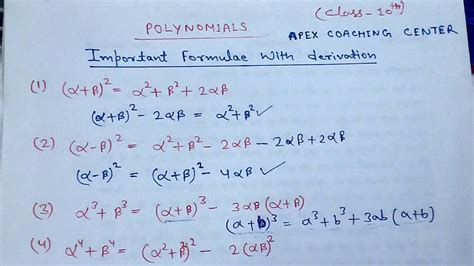 (Class-10th)
POLYNOMIALS
APEX COACHING CENTER
Important Formulae With derivation
(1) (α+β)² = α²+β²+2αβ
(α+β)²-2αβ = α²+β² ✓
(2) (α-β)² = α²+β²-2αβ-2αβ+2αβ
(α-β)² = (α+β)²-4αβ ✓
(3) α³+β³ = (α+β)³-3αβ(α+β)
(a+b)³ = a³+b³+3ab(a+b)
(4) α⁴+β⁴ = (α²+β²)²-2(αβ)²